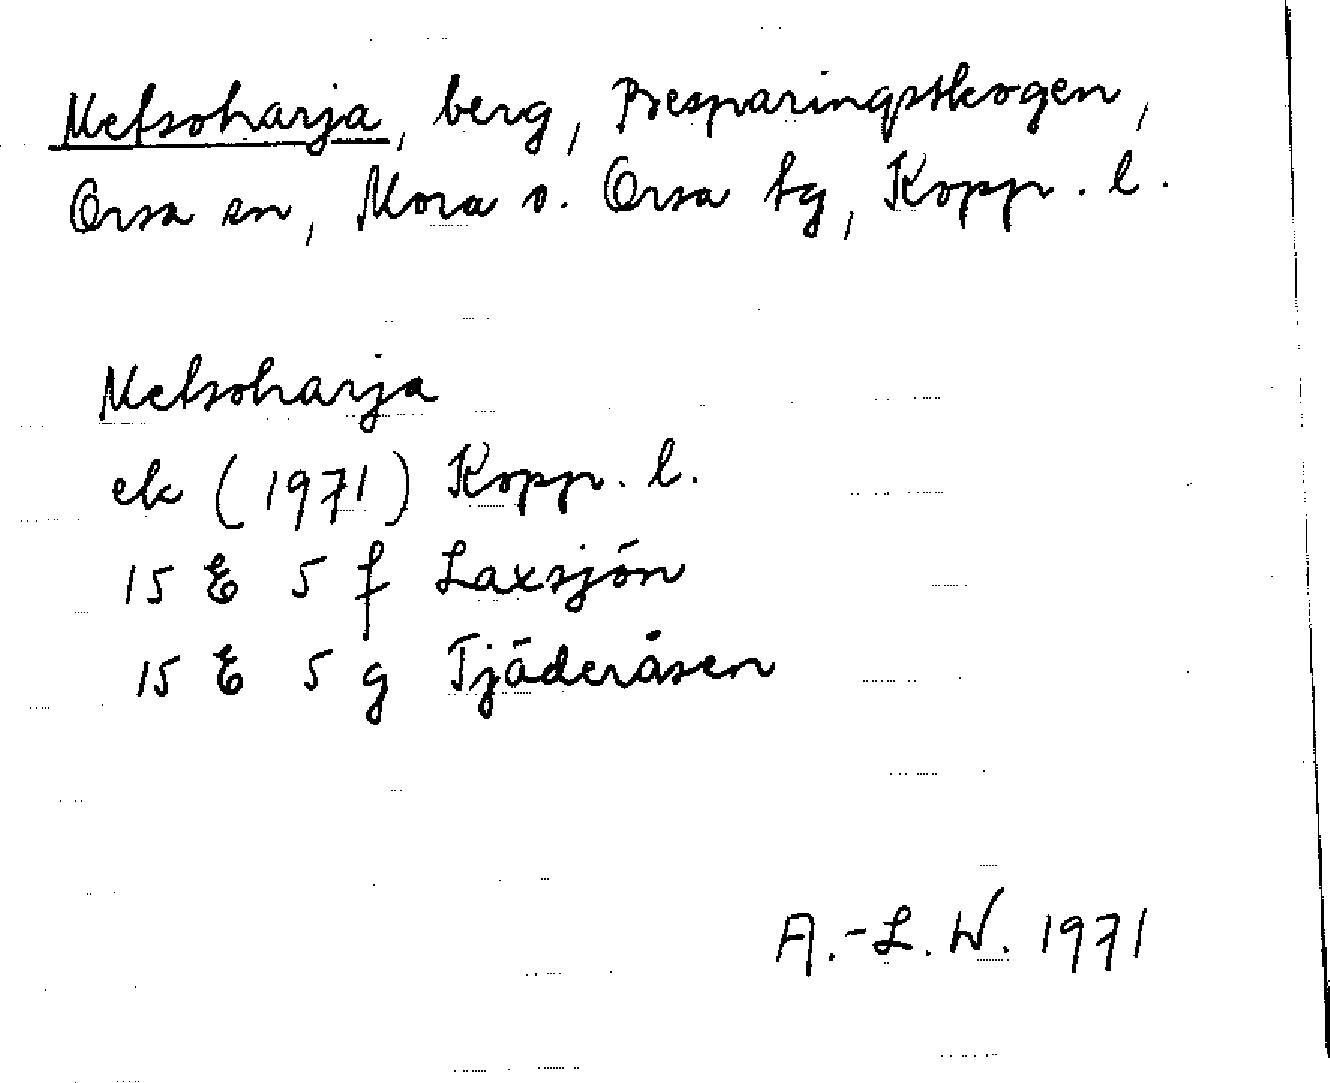 Metsoharja, berg, Besparingsskogen,
Orsa sn, Mora o. Orsa tg, Kopp. l.
Metsoharja
ek (1971) Kopp. l.
15 E 5 f Laxsjön
15 E 5 g Tjäderåsen
A.-L. W. 1971